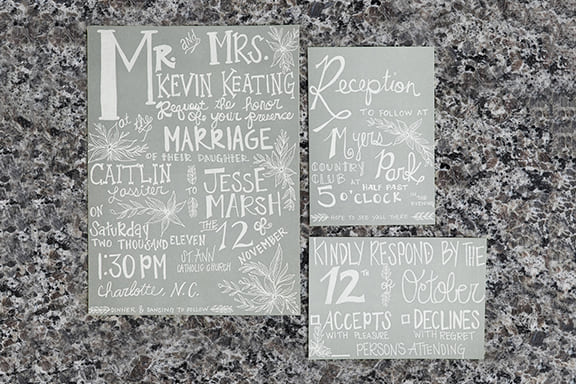 Mr. and Mrs.
KEVIN KEATING
Request the honor
of your presence
at the
MARRIAGE
OF THEIR DAUGHTER
CAITLIN
Lassiter
to
JESSE
MARSH
ON
Saturday
THE 12 of
NOVEMBER
TWO THOUSAND ELEVEN
1:30 PM
ST. ANN
CATHOLIC CHURCH
Charlotte, N.C.
DINNER & DANCING TO FOLLOW
Reception
TO FOLLOW AT
Myers
Park
COUNTRY
CLUB AT HALF PAST
5 O'CLOCK IN THE
EVENING
HOPE TO SEE YALL THERE
KINDLY RESPOND BY THE
12TH of October
ACCEPTS
WITH PLEASURE
DECLINES
WITH REGRET
PERSONS ATTENDING